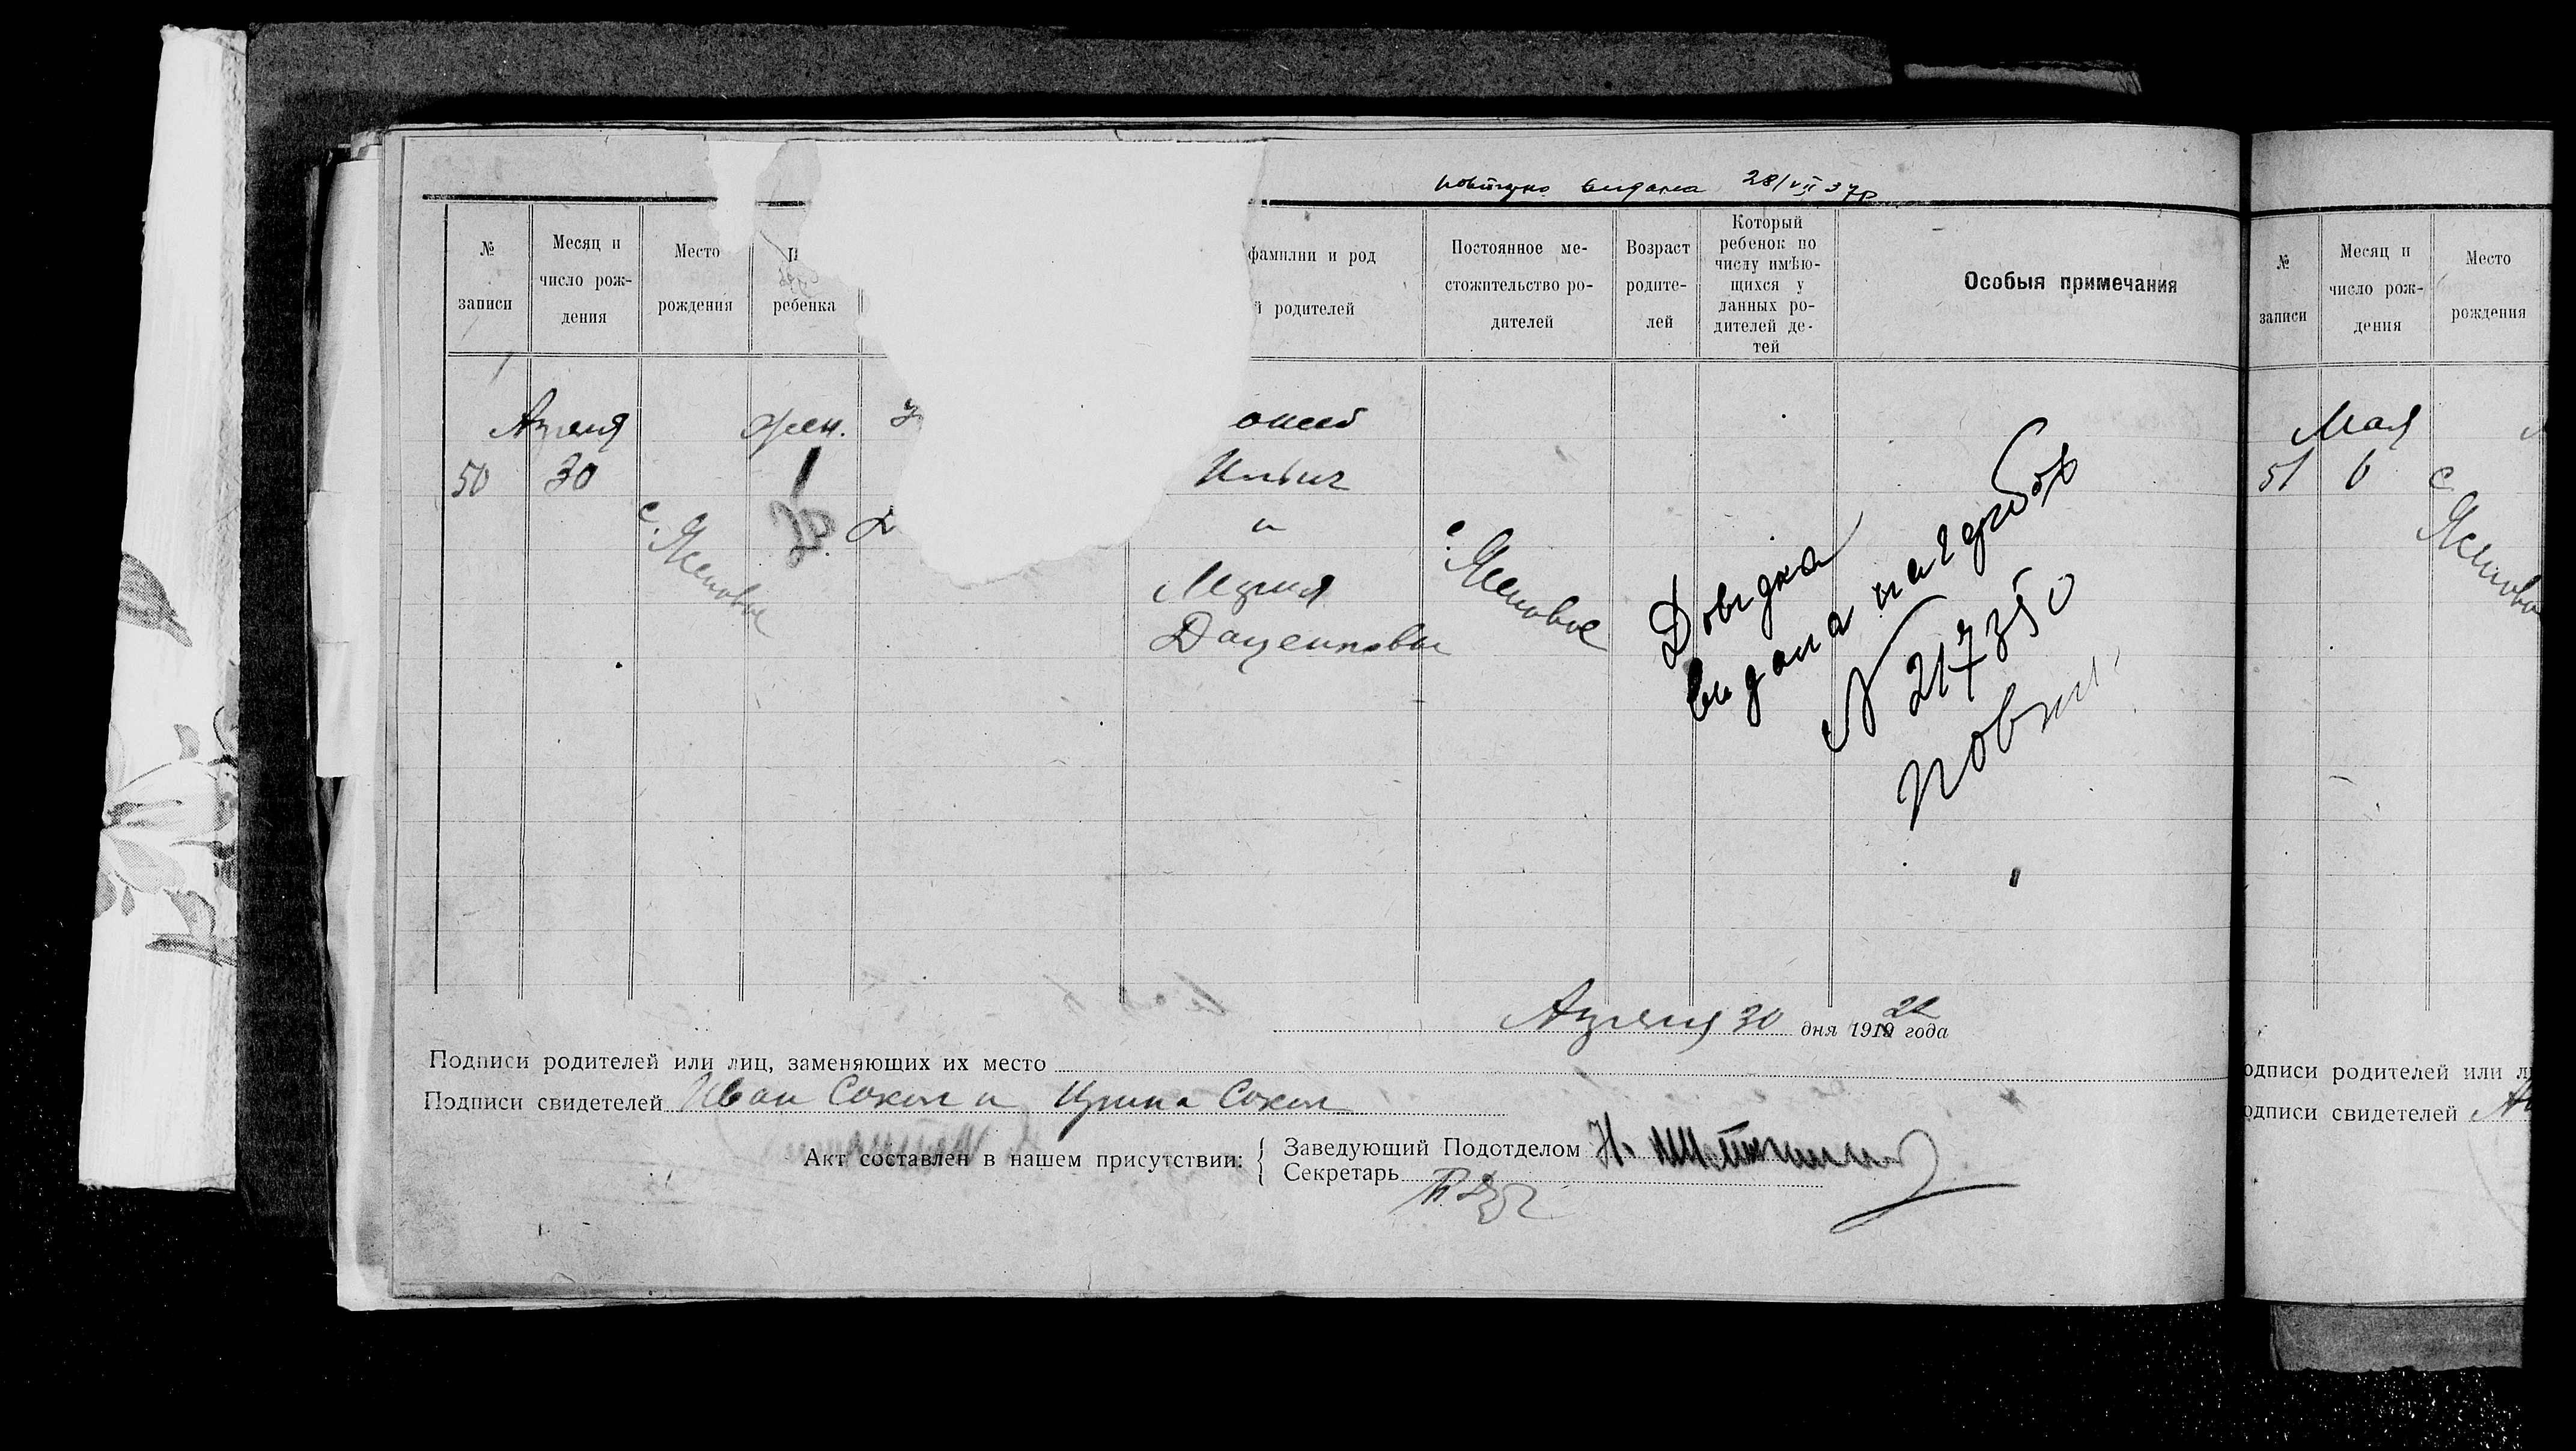 повторно видана 28/VII 37р
№ записи
Месяц и число рождения
Место рождения
ребенка
фамилии и род
родителей
Постоянное местожительство родителей
Возраст родителей
Который ребенок по числу имѣющихся у данных родителей детей
Особыя примечания
Апреля
жен.
50
30
с. Ясеновое
Ильич
и
Мария
Даценковы
с. Ясеновое
Довидка
видана на
N 217350
повтн.
Апреля 30 дня 1919 22 года
Подписи родителей или лиц, заменяющих их место
Подписи свидетелей Иван Сокол и Ирина Сокол
Акт составлен в нашем присутствии:
Заведующий Подотделом Н.
Секретарь
№ записи
Месяц и число рождения
Место рождения
Мая
51
6
с. Ясеново
одписи родителей или л
одписи свидетелей